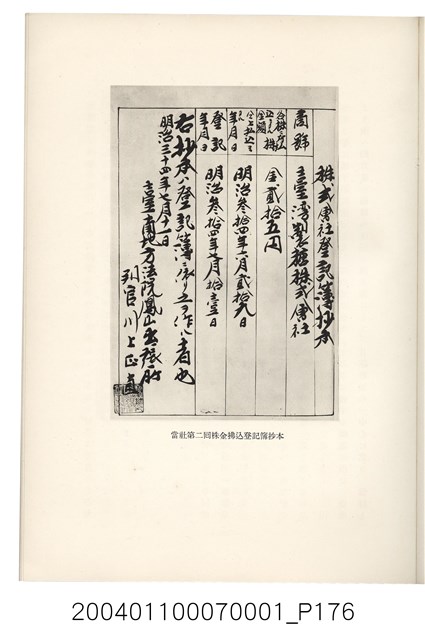 株式會社登記簿抄本
商號
臺灣製糖株式會社
各株ニ付拂込ミタル株金額
金貳拾五円
明治參拾四年六月貳拾九日
登記年月日
明治參拾四年七月拾壹日
右抄本ハ登記簿ニ依リ之ヲ作ル者也
明治三十四年七月十一日
臺南地方法院鳳山出張所
判官川上正
當社第二回株金拂込登記簿抄本
200401100070001_P176